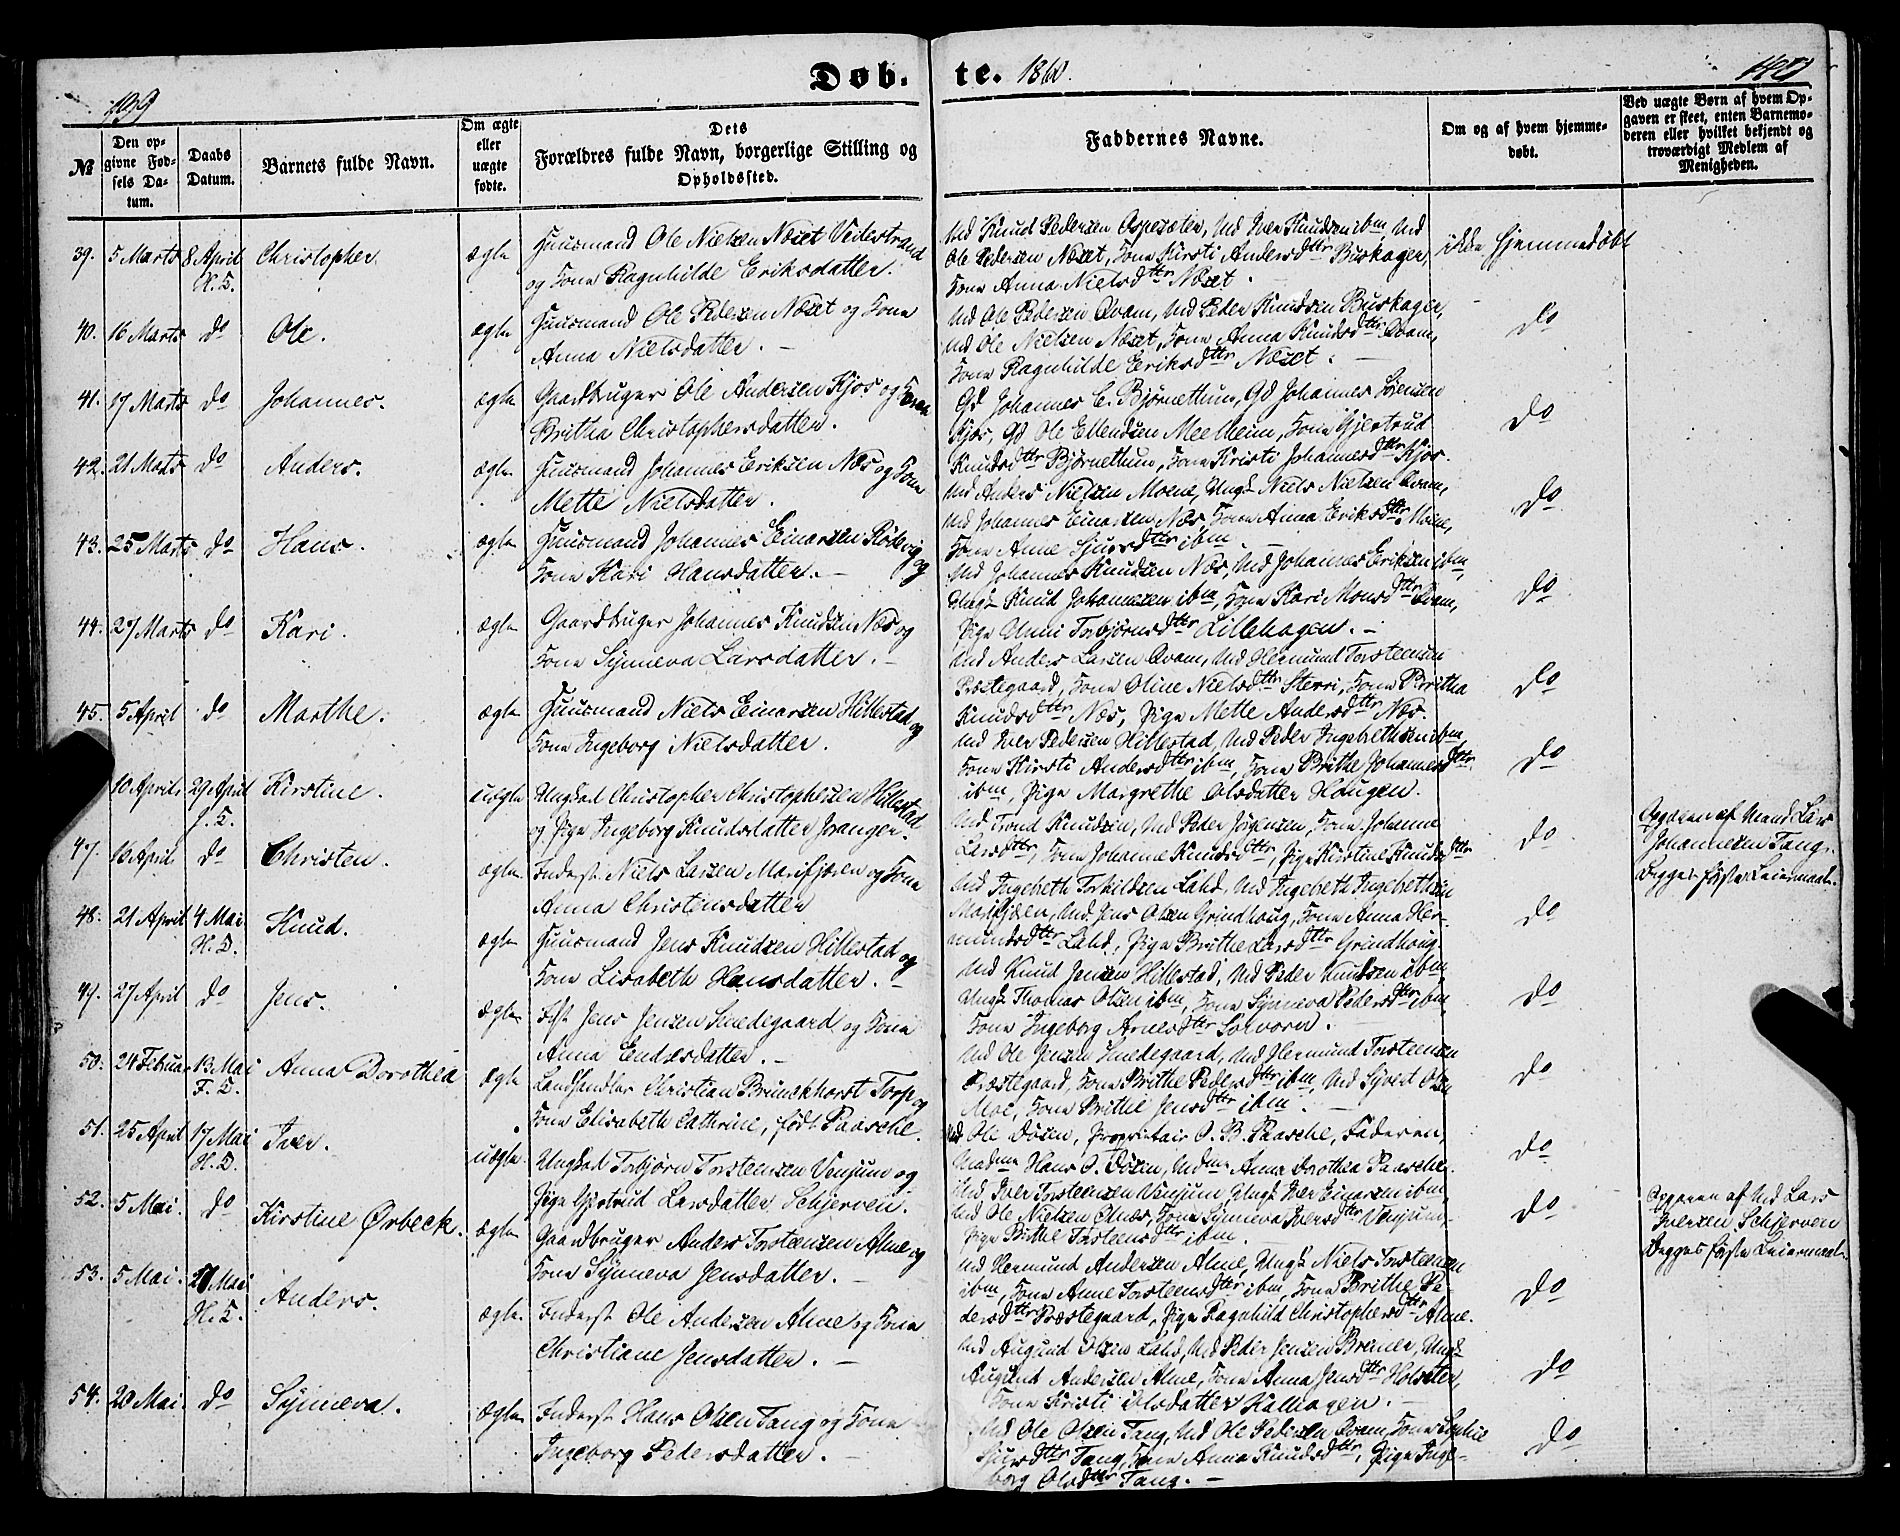 Døb. te. 1860.
139
140
№
Den opgivne Fødsels Datum.
Daabs Datum.
Barnets fulde Navn.
Om ægte eller uægte fødte.
Dets Forældres fulde Navn, borgerlige Stilling og Opholdssted.
Faddernes Navne.
Om og af hvem hjemmedøbt.
Ved uægte Børn af hvem Opgaven er skeet, enten Barnemoderen eller hvilket bekjendt og troværdigt Medlem af Menigheden.
39. 5 Marts 8 April Christopher. ægte Huusmand Ole Nielsen Næset Veilestrand
og Kone Ragnhilde Eriksdatter.
Md Knud Pedersen Aspesæter, Md Iver Knudsen ibm, Md
Ole Pedersen Næset, Kone Kirsti Andersdttr Buskagen,
Kone Anna Nielsdttr Næset.
ikke hjemmedøbt
40. 16 Marts do Ole. ægte Huusmand Ole Pedersen Næset og Kone
Anna Nielsdatter. —
Md Ole Pedersen Qvam, Md Peder Knudsen Buskagen,
Md Ole Nielsen Næset, Kone Anna Knudsdttr Qvam,
Kone Ragnhilde Eriksdttr Næset. —
do
41. 17 Marts do Johannes. ægte Gaardbruger Ole Andersen Kjos og Kone
Britha Christophersdatter.
Gd Johannes C. Bjørnethun, Gd Johannes Sørensen
Kjos, Gd Ole Ellendsen Meelheim, Kone Gjertrud
Knudsdttr Bjørnethun, Kone Kristi Johannesdttr Kjos.
do
42. 21 Marts do Anders. ægte Huusmand Johannes Eriksen Næs og Kone
Mette Nielsdatter.
Md Anders Nielsen Moene, Ungk Niels Nielsen Qvam,
Md Johannes Einarsen Næs, Kone Anna Eriksdttr Moene,
Kone Anne Sjursdttr ibm —
do
43. 25 Marts do Hans. ægte Huusmand Johannes Einarsen Rødevig og
Kone Kari Hansdatter. —
Md Johannes Knudsen Næs, Md Johannes Eriksen ibm,
Ungk Knud Johannesen ibm, Kone Kari Monsdttr Qvam,
Pige Unni Torbjørnsdttr Lillehagen. —
do
44. 27 Marts do Kari. ægte Gaardbruger Johannes Knudsen Næs og
Kone Synneva Larsdatter. —
Md Anders Larsen Qvam, Md Hermund Torsteensen
Præstegaard, Kone Oline Nielsdttr Sterri, Kone Britha
Knudsdttr Næs, Pige Mette Andersdttr Næs.
do
45. 5 April do Marthe. ægte Huusmand Niels Einarsen Hillestad og
Kone Ingeborg Nielsdatter.
Md Iver Pedersen Hillestad, Md Peder Ingebrethsen ibm,
Kone Kirsti Andersdttr ibm, Kone Brithe Johannesdttr
ibm, Pige Margrethe Olsdatter Haugen.
do
10 April 29 April Kirstine. uægte Ungkarl Christopher Christophersen Hillestad
og Pige Ingeborg Knudsdatter Joranger.
Md Trond Knudsen, Md Peder Jørgensen, Kone Johanne
Larsdttr, Kone Johanne Knudsdttr, Pige Kirstine Knudsdttr
do
Opgaven af Mand Lars
Johannesen Tang.
Begges første Leiermaal.
47. 16 April do Christen. ægte Inderst Niels Larsen Marifjæren og Kone
Anna Christensdatter
Md Ingebreth Torkildsen Lahd, Md Ingebreth Ingebrethsen
Marifjæren, Md Jens Olsen Grindhaug, Kone Anna Hermundsdttr Lahd, Pige Brithe Larsdttr Grindhoug.
do
48. 21 April 4 Mai Knud. ægte Huusmand Jens Knudsen Hillestad og
Kone Lisabeth Hansdatter. —
Md Knud Jensen Hillestad, Md Peder Knudsen ibm
Ungk Thomas Olsen ibm, Kone Synneva Pedersdttr ibm,
Kone Ingeborg Arnesdttr Solvorn.
do
49. 27 April do Jens. ægte Fst Jens Jensen Smedegaard og Kone
Anna Endresdatter. —
Md Ole Jensen Smedegaard, Md Hermund Torsteensen
Præstegaard, Kone Brithe Pedersdttr ibm, Md Syvert Olsen
Moe, Kone Brithe Jensdttr ibm. —
do
50. 24 Februar 13 Mai Anna Dorothea ægte Landhandler Christian Brunckhorst Torp og
Kone Elisabeth Cathrine, født Paasche.
Md Ole Døsen, Proprietair O. B. Paasche, Faderen,
Madme Hans O. Døsen, Madme Anna Dorothea Paasche.
do
51. 25 April 17 Mai Iver. uægte Ungkarl Torbjørn Torsteensen Venjum og
Pige Gjertrud Larsdatter Schjerven.
Md Iver Torsteensen Venjum, Ungk Iver Einarsen ibm,
Md Ole Nielsen Ønæs, Kone Synneva Iversdttr Venjum,
Pige Brithe Torsteensdttr ibm. —
do
Opgaven af Md Lars
Iversen Schjerven
Begges første Leiermaal.
52. 5 Mai. do Kirstine Ørbeck. ægte Gaardbruger Anders Torsteensen Alme og
Kone Synneva Jensdatter. —
Md Hermund Andersen Alme, Ungk Niels Torsteensen
ibm, Kone Anne Torsteensdttr ibm, Kone Brithe Pedersdttr Præstegaard, Pige Ragnhild Christophersdttr Alme.
do
53. 5 Mai. 27 Mai Anders. ægte Inderst Ole Andersen Alme og Kone
Christiane Jensdatter. —
Md Augund Olsen Lahd, Md Peder Jensen Bremer, Ungk
Augund Andersen Alme, Kone Anna Jensdttr Holsæter,
Kone Kristi Olsdatter Kalhagen. —
do
54. 20 Mai. do Synneva. ægte Inderst Hans Olsen Tang og Kone
Ingeborg Pedersdatter. —
Md Ole Olsen Tang, Md Ole Pedersen Qvam, Kone Sophie
Sjursdttr Tang, Kone Anna Knudsdttr, Pige Ingeborg Olsdttr Tang. —
do